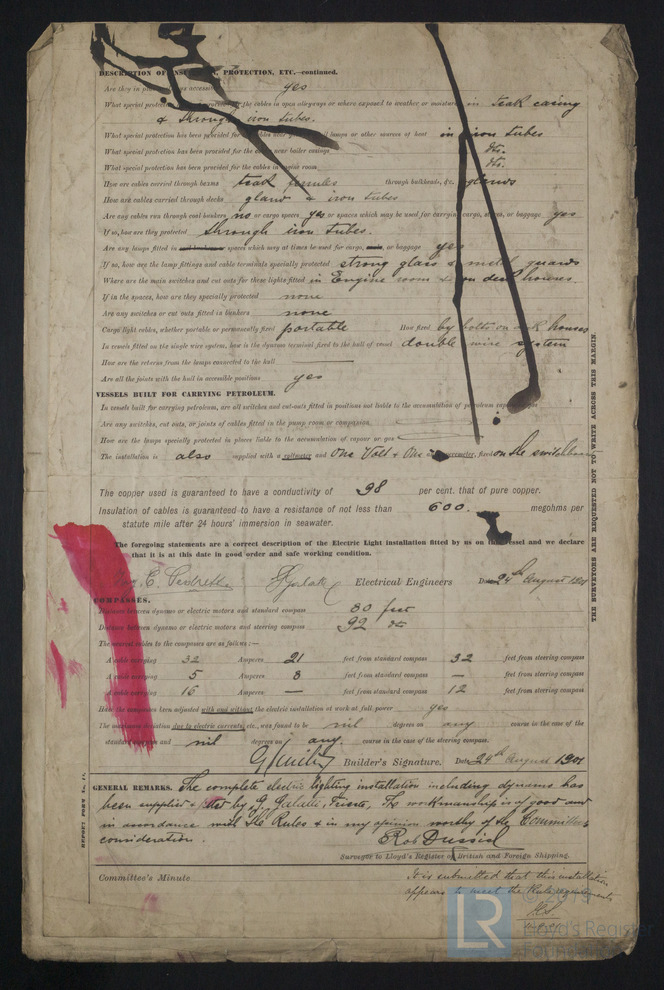 DESCRIPTION OF INSULATION, PROTECTION, ETC.—continued.
Are they in places accessible yes
What special protection has been provided for the cables in open alleyways or where exposed to weather or moisture in teak casing
& through iron tubes.
What special protection has been provided for the cables near galleys, oil lamps or other sources of heat in iron tubes
What special protection has been provided for the cables near boiler casings do.
What special protection has been provided for the cables in engine room do.
How are cables carried through beams teak ferrules through bulkheads, &c. glands
How are cables carried through decks gland & iron tubes
Are any cables run through coal bunkers no or cargo spaces yes or spaces which may be used for carrying cargo, stores, or baggage yes
If so, how are they protected through iron tubes.
Are any lamps fitted in coal bunkers or spaces which may at times be used for cargo, coals, or baggage yes
If so, how are the lamp fittings and cable terminals specially protected strong glass & metal guards
Where are the main switches and cut outs for these lights fitted in Engine room & on deck houses.
If in the spaces, how are they specially protected none
Are any switches or cut outs fitted in bunkers none
Cargo light cables, whether portable or permanently fixed portable How fixed by bolts on deck houses
In vessels fitted on the single wire system, how is the dynamo terminal fixed to the hull of vessel double wire system
How are the returns from the lamps connected to the hull
Are all the joints with the hull in accessible positions yes
VESSELS BUILT FOR CARRYING PETROLEUM.
In vessels built for carrying petroleum, are all switches and cut-outs fitted in positions not liable to the accumulation of petroleum vapour
Are any switches, cut outs, or joints of cables fitted in the pump room or companion
How are the lamps specially protected in places liable to the accumulation of vapour or gas
The installation is also supplied with a voltmeter and One Volt & One amperemeter, fixed on the switchboard
The copper used is guaranteed to have a conductivity of 98 per cent. that of pure copper.
Insulation of cables is guaranteed to have a resistance of not less than 600 megohms per
statute mile after 24 hours' immersion in seawater.
The foregoing statements are a correct description of the Electric Light installation fitted by us on this vessel and we declare
that it is at this date in good order and safe working condition.
Galatti Electrical Engineers Date 24th August 1901
COMPASSES.
Distance between dynamo or electric motors and standard compass 80 feet
Distance between dynamo or electric motors and steering compass 92 do
The nearest cables to the compasses are as follows:—
A cable carrying 32 Amperes 21 feet from standard compass 32 feet from steering compass
A cable carrying 5 Amperes 8 feet from standard compass — feet from steering compass
A cable carrying 16 Amperes — feet from standard compass 12 feet from steering compass
Have the compasses been adjusted with and without the electric installation at work at full power yes
The maximum deviation due to electric currents, etc., was found to be nil degrees on any course in the case of the
standard compass and nil degrees on any course in the case of the steering compass.
Builder's Signature. Date 24th August 1901
GENERAL REMARKS. The complete electric lighting installation including dynamo has
been supplied & fitted by G. Galatti, Trieste, The workmanship is of good and
in accordance with the Rules & in my opinion worthy of the Committee's
consideration.
Surveyor to Lloyd's Register of British and Foreign Shipping.
Committee's Minute
It is submitted that this installation
appears to meet the Rule requirements
REPORT FORM No. 17.
THE SURVEYORS ARE REQUESTED NOT TO WRITE ACROSS THIS MARGIN.
LR
Lloyd's Register
Foundation